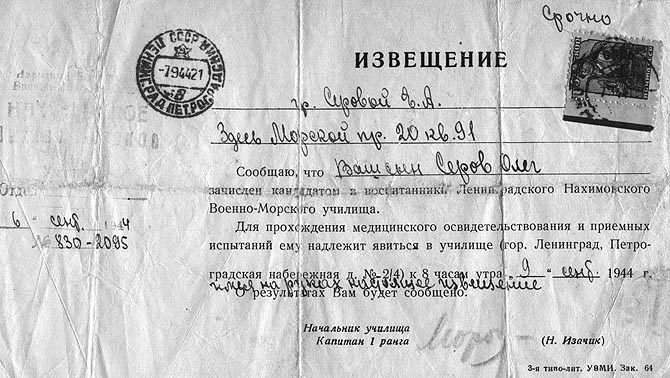 Срочно
ИЗВЕЩЕНИЕ
СССР
ЛЕНИНГРАД ПЕТРОГРАДСКИЙ
-7.9.44.21
гр. Серовой З.А.
Здесь Морской пр. 20 кв. 91
Сообщаю, что Ваш сын Серов Олег
зачислен кандидатом в воспитанники Ленинградского Нахимовского
Военно-Морского училища.
Для прохождения медицинского освидетельствования и приемных
испытаний ему надлежит явиться в училище (гор. Ленинград, Петро-
градская набережная д. № 2(4) к 8 часам утра "9" сент. 1944 г.
имея на руках настоящее извещение
О результатах Вам будет сообщено.
Отдел
6 - сент. 1944
№ 830-2095
Начальник училища
Капитан 1 ранга
(Н. Изачик)
3-я типо-лит. УВМИ. Зак. 64